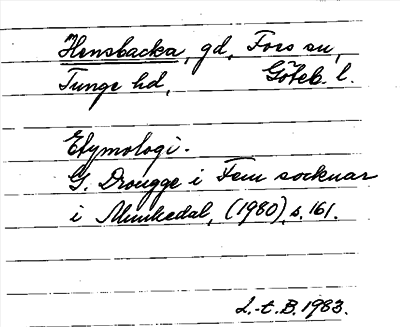 Hensbacka, gd, Foss sn,
Tunge hd, Göteb. l.
Etymologi.
G. Drougge i Fem socknar
i Munkedal, (1980), s. 161.
L.-t. B. 1983.